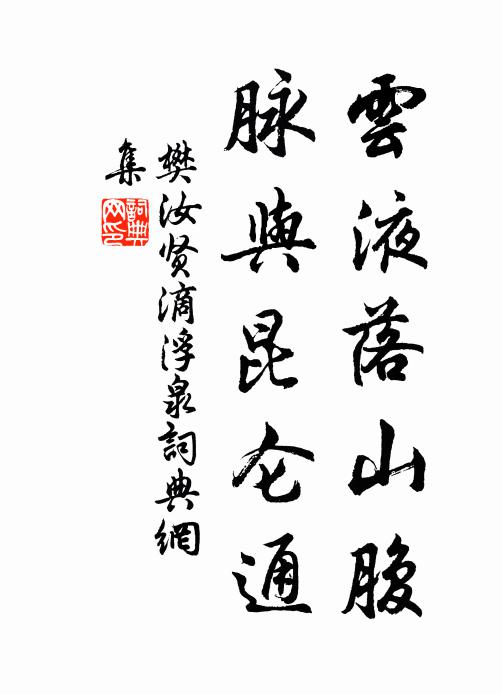 雲液落山腹
脉與昆仑通
樊汝贤滴浮泉詞典網
集
詞典
网印